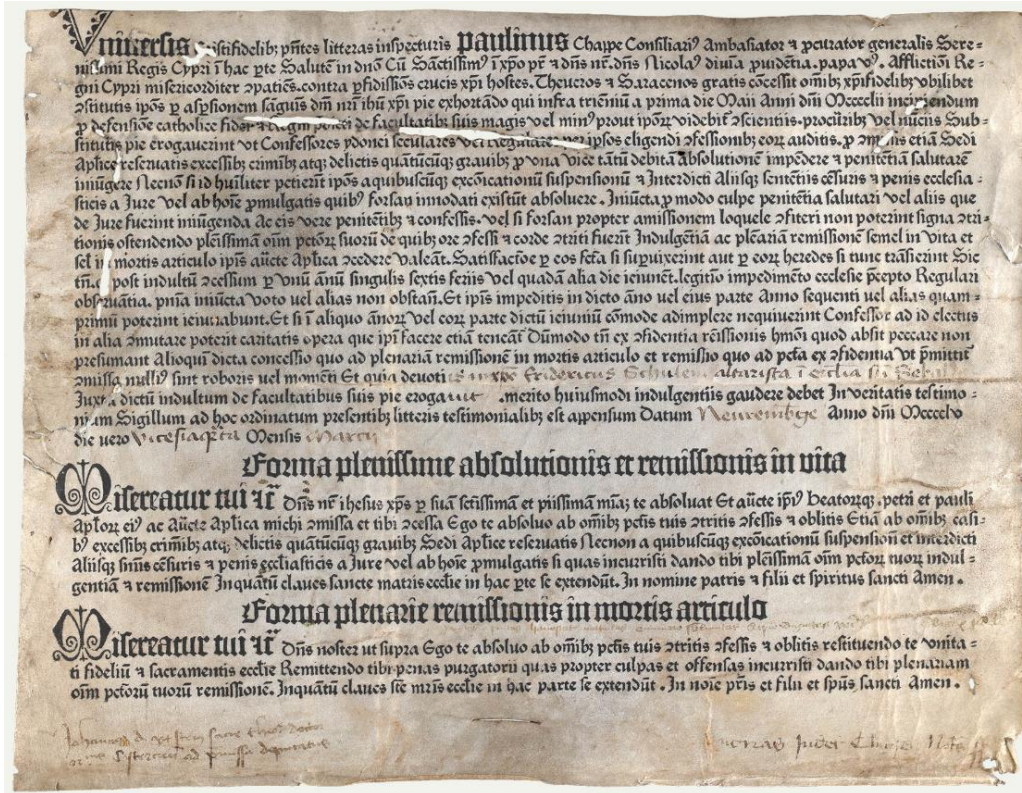 Vniuersis Cristifidelibꝫ pñtes litteras inspecturis paulinus Chappe Consiliariꝰ Ambasiator ⁊ ꝓcurator generalis Sere⸗
nissimi Regis Cypri ĩ hac ꝑte Salutẽ in dnõ Cũ Sãctissimꝰ ĩ xp̃o pr̃ ⁊ dñs nr̃. dñs Nicolaꝰ diuĩa ꝓuidẽtia. papa vꝰ. Afflictiõi Re⸗
gni Cypri misericorditer ꝯpatiẽs. contra ꝑfidissiõs crucis xp̃i hostes. Theucros ⁊ Saracenos gratis cõcessit om̃ibꝫ xp̃ifidelibꝫ vbilibet
ꝯstitutis ip̃os ꝑ asp̃sionem sãguis dñi nr̃i ihũ xp̃i pie exhortãdo qui infra trieniũ a prima die Maii Anni dñi Mcccclii incipiendum
ꝓ defensiõe catholice fidei ⁊ Regni de facultatibꝫ suis magis vel minꝰ prout ip̃oꝝ videbit ꝯscientiis. procũribꝫ vel nũciis Sub⸗
stitutis pie erogauerint vt Confessores ydonei seculares vel Regulares per ipsos eligendi ꝯfessionibꝫ eoꝝ auditis. ꝓ etiã Sedi
Apl̃ice reseruatis excessibꝫ crimĩbꝫ atqꝫ delictis quãtũcũqꝫ grauibꝫ ꝓ vna vice tãtũ debitã absolutionẽ impẽdere ⁊ penitẽtiã salutarẽ
iniũgere Necnõ si id huĩliter petierĩt ip̃os a quibuscũqꝫ excõicationũ suspensionũ ⁊ Interdicti Aliisqꝫ sentẽtiis cẽsuris ⁊ penis ecclesia⸗
sticis a Jure vel ab hoĩe ꝓmulgatis quibꝰ forsan innodati existũt absoluere. Iniũcta ꝓ modo culpe penitẽtia salutari vel aliis que
de Jure fuerint iniũgenda Ac eis vere penitẽtibꝫ ⁊ confessis. vel si forsan propter amissionem loquele ꝯfiteri non poterint signa ꝯtri⸗
tionis ostendendo plẽissimã oĩm pctõꝝ suoꝝ de quibꝫ ore ꝯfessi ⁊ corde ꝯtriti fuerĩt Indulgẽtiã ac plẽariã remissionẽ semel in vita et
sel̃ in mortis articulo ip̃is aũcte Apl̃ica ꝯcedere valeãt. Satisfactõe ꝑ eos fctã si supuixerint aut ꝑ eoꝝ heredes si tunc trãsierint Sic
tñ. ꝙ post indultũ ꝯcessum ꝑ vnũ ãnũ singulis sextis feriis vel quadã alia die ieiunẽt. legitio impedimẽto ecclesie p̃cepto Regulari
obseruãtia. pnĩa iniũcta voto vel alias non obstañ. Et ip̃is impeditis in dicto ãno vel eius parte Anno sequenti vel alias quam⸗
primũ poterint ieiunabunt. Et si ĩ aliquo ãnoꝝ vel eoꝝ parte dictũ ieiuniũ cõmode adimplere nequiuerint Confessor ad id electus
in alia ꝯmutare poterit caritatis opera que ip̃i facere etiã teneãt Dũmodo tñ ex ꝯfidentia remissionis hm̃õi quod absit peccare non
presumant Alioqui dicta concessio quo ad plenariam remissionẽ in mortis articulo et remissio quo ad pctã ex ꝯfidentia vt p̃mittit
ꝯmissa nulliꝰ sint roboris uel momẽti Et quia deuoti in xp̃o Fridericus Schulem altarista ĩ
Juxta dictũ indultum de facultatibus suis pie erogauit .merito huiusmodi indulgentiis gaudere debet In veritatis testimo⸗
nium Sigillum ad hoc ordinatum presentibꝫ litteris testimonialibꝫ est appensum Datum Neurembge Anno dñi Mcccclv
die vero Mensis Marcii
Forma plenissime absolutionis et remissionis in vita
Misereatur tui ⁊c̃ Dñs nr̃ ihesus xp̃s ꝑ suã sctissimã et piissimã mĩaꝫ te absoluat Et aũcte ip̃iꝰ beatorqꝫ. petri et pauli
Apl̃oꝝ eiꝰ ac Aũcte Apl̃ica michi ꝯmissa et tibi ꝯcessa Ego te absoluo ab om̃ibꝫ pctĩs tuis ꝯtritis ꝯfessis ⁊ oblitis Etiã ab om̃ibꝫ casi⸗
bꝰ excessibꝫ crimĩbꝫ atqꝫ delictis quãtũcũqꝫ grauibꝫ Sedi Apl̃ice reseruatis Necnon a quibuscũqꝫ excõicationũ suspensionũ et interdicti
Aliisqꝫ sñiis cẽsuris ⁊ penis eccl̃iasticis a Jure vel ab hoĩe ꝓmulgatis si quas incurristi dando tibi plẽissimã oĩm pctõꝝ tuoꝝ indul⸗
gentiã ⁊ remissionẽ Inquãtũ claues sancte matris eccl̃ie in hac ꝑte se extendũt. In nomine patris ⁊ filii et spiritus sancti Amen.
Forma plenarie remissionis in mortis articulo
Misereatur tui ⁊c̃ Dñs noster ut supra Ego te absoluo ab om̃ibꝫ pctĩs tuis ꝯtritis ꝯfessis ⁊ oblitis restituendo te vnita⸗
ti fideliũ ⁊ sacramentis eccl̃ie Remittendo tibi penas purgatorii quas propter culpas et offensas incurristi dando tibi plenariam
oĩm pctõrũ tuorũ remissionẽ. Inquãtũ claues stẽ mr̃is eccl̃ie in hac parte se extendũt. In noĩe pr̃is et filii et spũs sancti Amen.
ad p̃missa deputatus